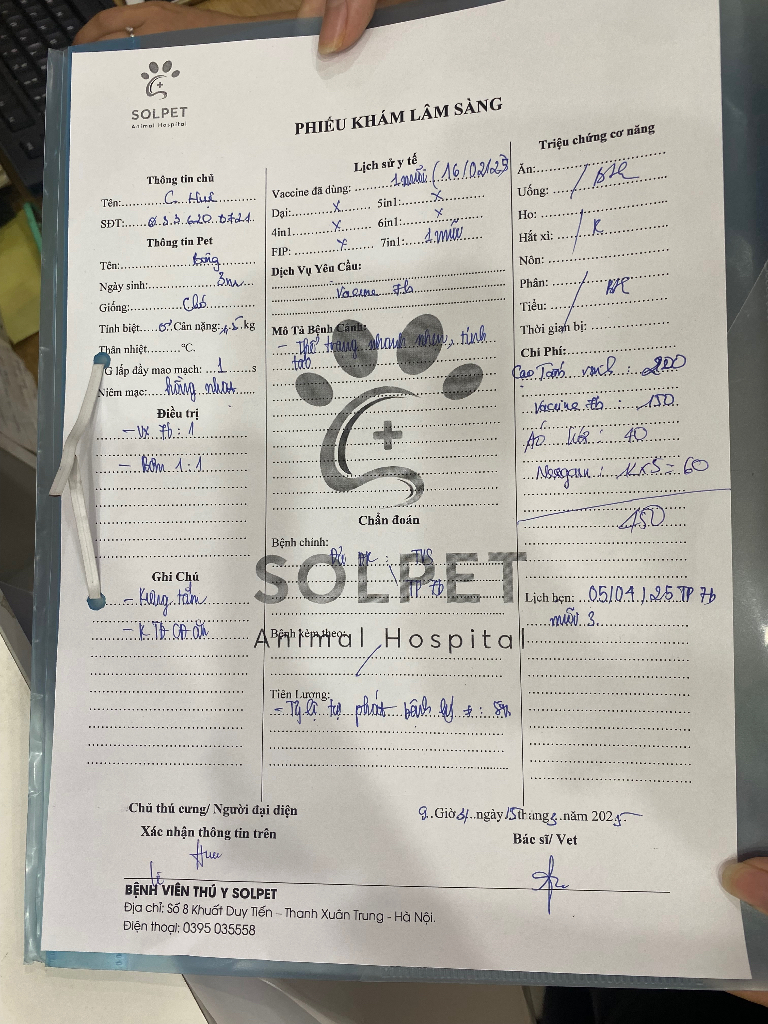 SOLPET
Animal Hospital
PHIẾU KHÁM LÂM SÀNG
Thông tin chủ
Tên: C. Huê
SĐT: 0.3.3.620.0721
Thông tin Pet
Tên: Bông
Ngày sinh: 3m
Giống: Chó
Tính biệt: ♂ Cân nặng: kg
Thân nhiệt °C.
G lấp đầy mao mạch: 1 s
Niêm mạc: hồng nhạt
Điều trị
- Vx 7b : 1
- 1 : 1
Ghi Chú
- Kiêng tắm
- K TĐ ăn
Lịch sử y tế
Vaccine đã dùng: 1 mũi (16/02/25)
Dại: x 5in1: x
4in1 x 6in1: x
FIP: x 7in1: 1 mũi
Dịch Vụ Yêu Cầu:
Vaccine 7b
Mô Tả Bệnh Cảnh:
- Thể trạng nhanh nhẹn, tỉnh
táo
Chẩn đoán
Bệnh chính:
TP 7b
SOLPET
Animal Hospital
Bệnh kèm theo:
Tiên Lượng:
- Tỷ lệ tự phát bệnh lý :
Triệu chứng cơ năng
Ăn:
Uống:
Ho:
Hắt xì: K
Nôn:
Phân:
Tiểu:
Thời gian bị:
Chi Phí:
Cạo vuch : 200
Vaccine 7b : 150
Áo : 40
Nexgard : = 60
450
Lịch hẹn: 05/04/25 TP 7b
mũi 3.
Chủ thú cưng/ Người đại diện
Xác nhận thông tin trên
9 Giờ 31 ngày 15 tháng 3 năm 2025
Bác sĩ/ Vet
BỆNH VIỆN THÚ Y SOLPET
Địa chỉ: Số 8 Khuất Duy Tiến - Thanh Xuân Trung - Hà Nội.
Điện thoại: 0395 035558